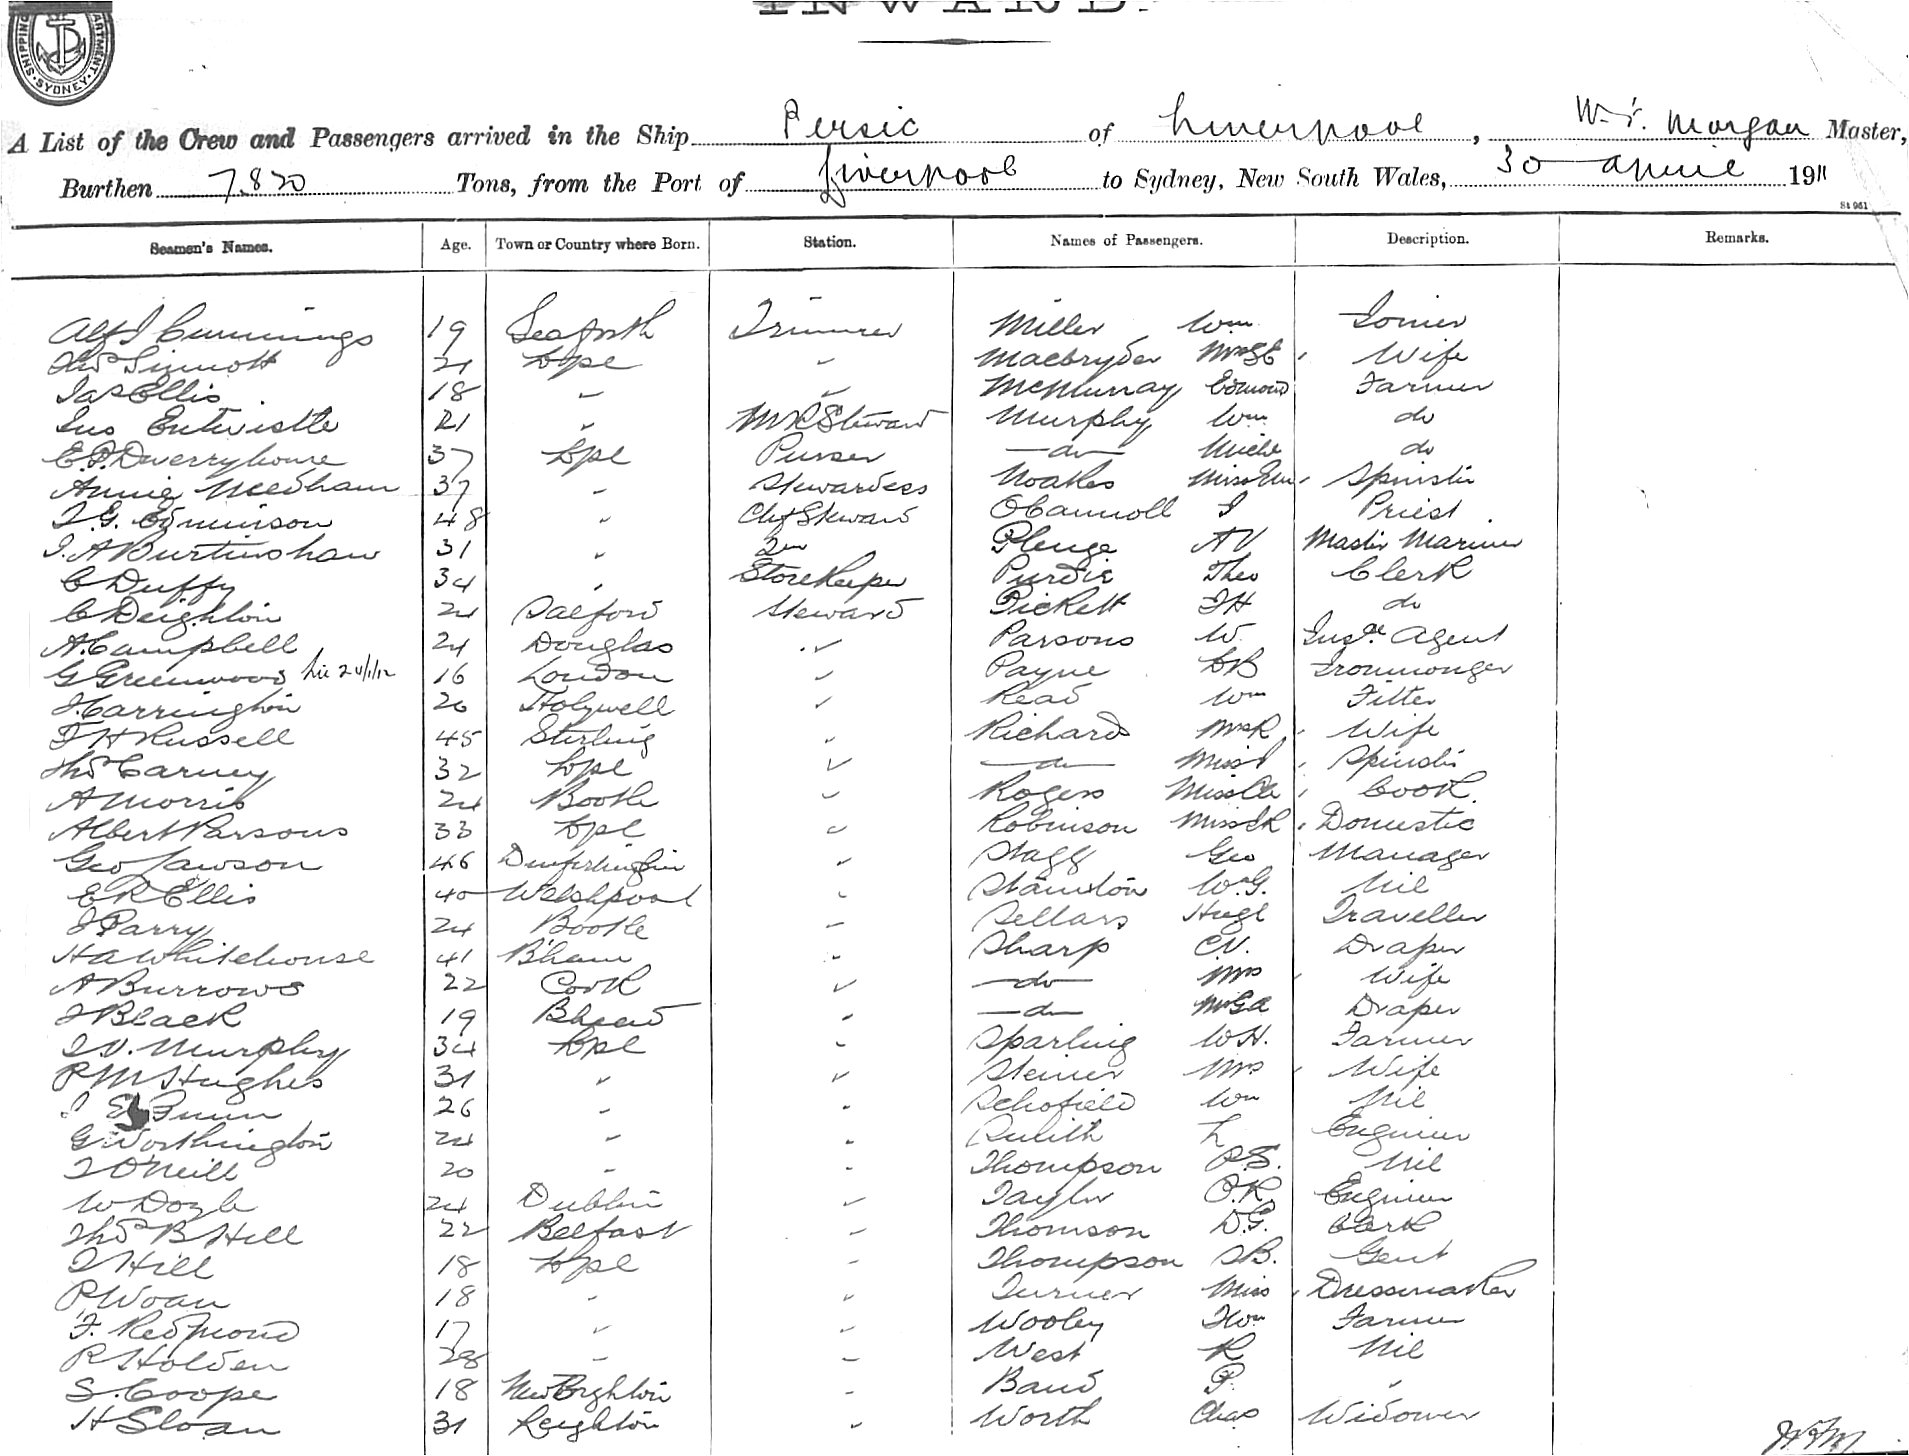 INWARD.
SHIPPING DEPARTMENT. SYDNEY.
A List of the Crew and Passengers arrived in the Ship Persic of Liverpool, Morgan Master,
Burthen 7,820 Tons, from the Port of Liverpool to Sydney, New South Wales, 30 April 1911
St 961
Seamen's Names. Age. Town or Country where Born. Station. Names of Passengers. Description. Remarks.
Alf J Cummings 19 Seaforth Trimmer Miller Wm Joiner
Thos Sinnott 21 Lpl " Macbryder Mrs Wife
Jas Ellis 18 " " McMurray Edmond Farmer
Jno Entwistle 21 " Steward Murphy Wm do
Dwerryhouse 37 Lpl Purser do do
Annie Needham 37 " Stewardess Noakes Miss Spinster
48 " Chf Steward J Priest
J. A Burtinshaw 31 " 2nd Plenge A V Master Mariner
C Duffy 34 " Storekeeper Purdie Theo Clerk
C Deighton 24 Salford Steward Pickett do
A. Campbell 24 Douglas " Parsons W. Insce Agent
G Greenwood 16 London " Payne Ironmonger
J. Carrington 20 Holywell " Read Wm Fitter
Russell 45 Stirling " Richards Mrs R Wife
Thos Carney 32 Lpl " do Miss Spinster
A Morris 24 Bootle " Rogers Miss Cook
Albert Parsons 33 Lpl " Robinson Miss Domestic
Geo Lawson 46 " Stagg Geo Manager
E R Ellis 40 Welshpool " Staunton W. G. Nil
J Parry 24 Bootle " Sellars Hugh Traveller
H A Whitehouse 41 B'ham " Sharp Draper
A Burrows 22 Cork " do Mrs Wife
J Black 19 Bhead " do Draper
J. V. Murphy 34 Lpl " Sparling W H. Farmer
R M Hughes 31 " " Steiner Mrs Wife
26 " " Schofield Wm Nil
G Worthington 24 " " L Engineer
J O'Neill 20 " " Thompson P. S. Nil
W Doyle 24 Dublin " Taylor Engineer
Thos B Hill 22 Belfast " Thomson D. G. Clerk
J Hill 18 Lpl " Thompson S B. Gent
P Woan 18 " " Turner Miss Dressmaker
F. Redmond 17 " " Wooley Farmer
R Holden 28 " " West R Nil
S. Coope 18 New Brighton " Band P. "
H Sloan 31 Leighton " Worth Chas Widower